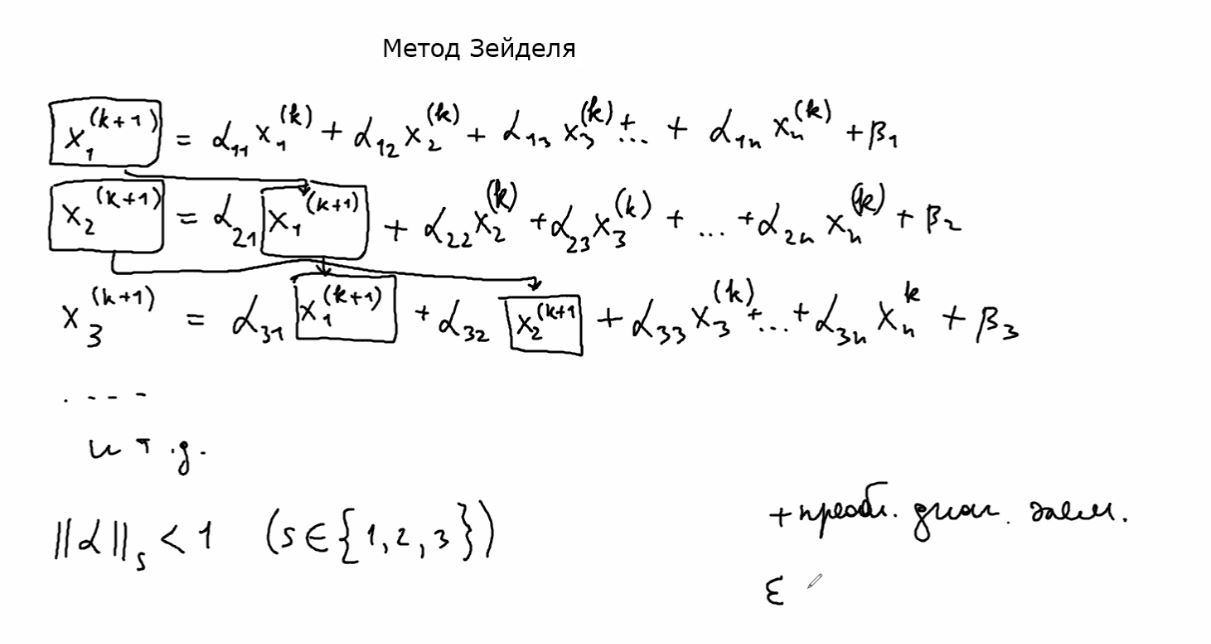 Метод Зейделя
x₁^(k+1) = α₁₁ x₁^(k) + α₁₂ x₂^(k) + α₁₃ x₃^(k) + ... + α₁ₙ xₙ^(k) + β₁
x₂^(k+1) = α₂₁ x₁^(k+1) + α₂₂ x₂^(k) + α₂₃ x₃^(k) + ... + α₂ₙ xₙ^(k) + β₂
x₃^(k+1) = α₃₁ x₁^(k+1) + α₃₂ x₂^(k+1 + α₃₃ x₃^(k) + ... + α₃ₙ xₙ^k + β₃
. - - -
и т.д.
||α||ₛ < 1 (s ∈ {1, 2, 3})
+ преобл. диаг. элем.
ε